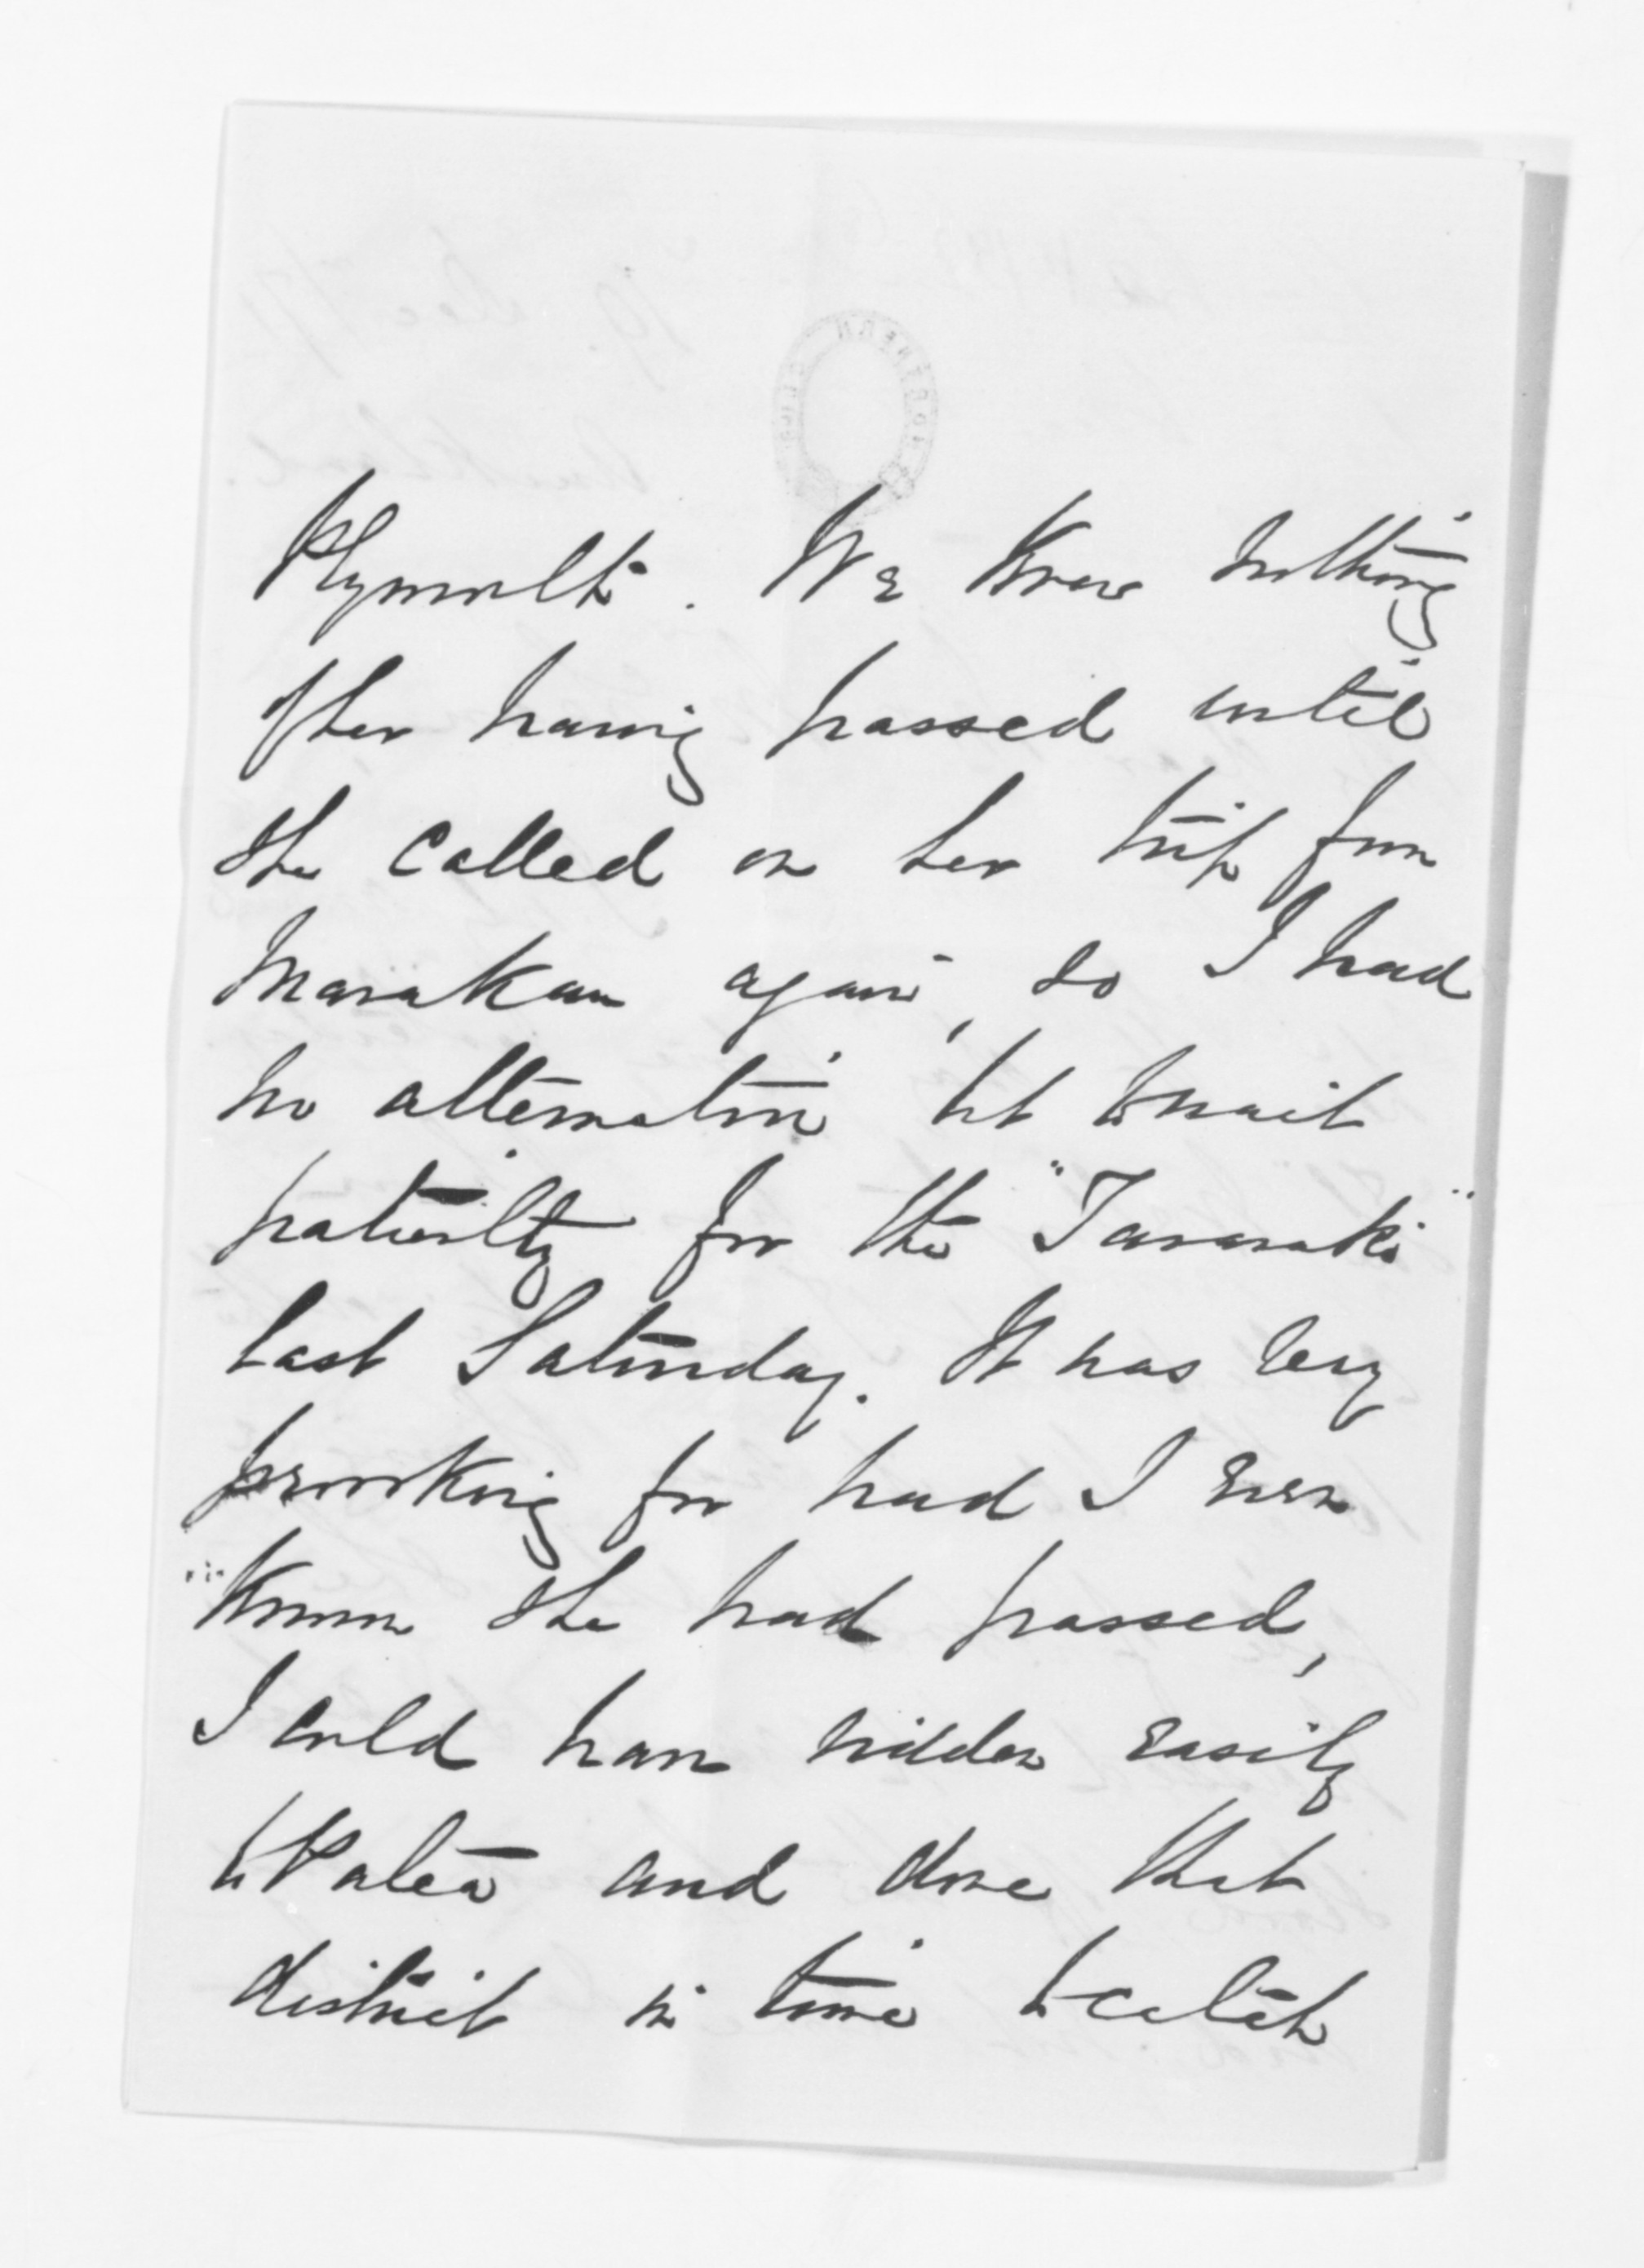 Plymouth. We knew nothing
of her having passed until
she called on her trip from
Manakau again, so I had
no alternative but to wait
patiently for the "Taranaki"
last Saturday. It was very
provoking for had I even
known she had passed,
I could have ridden easily
to Patea and done that
district in time to catch